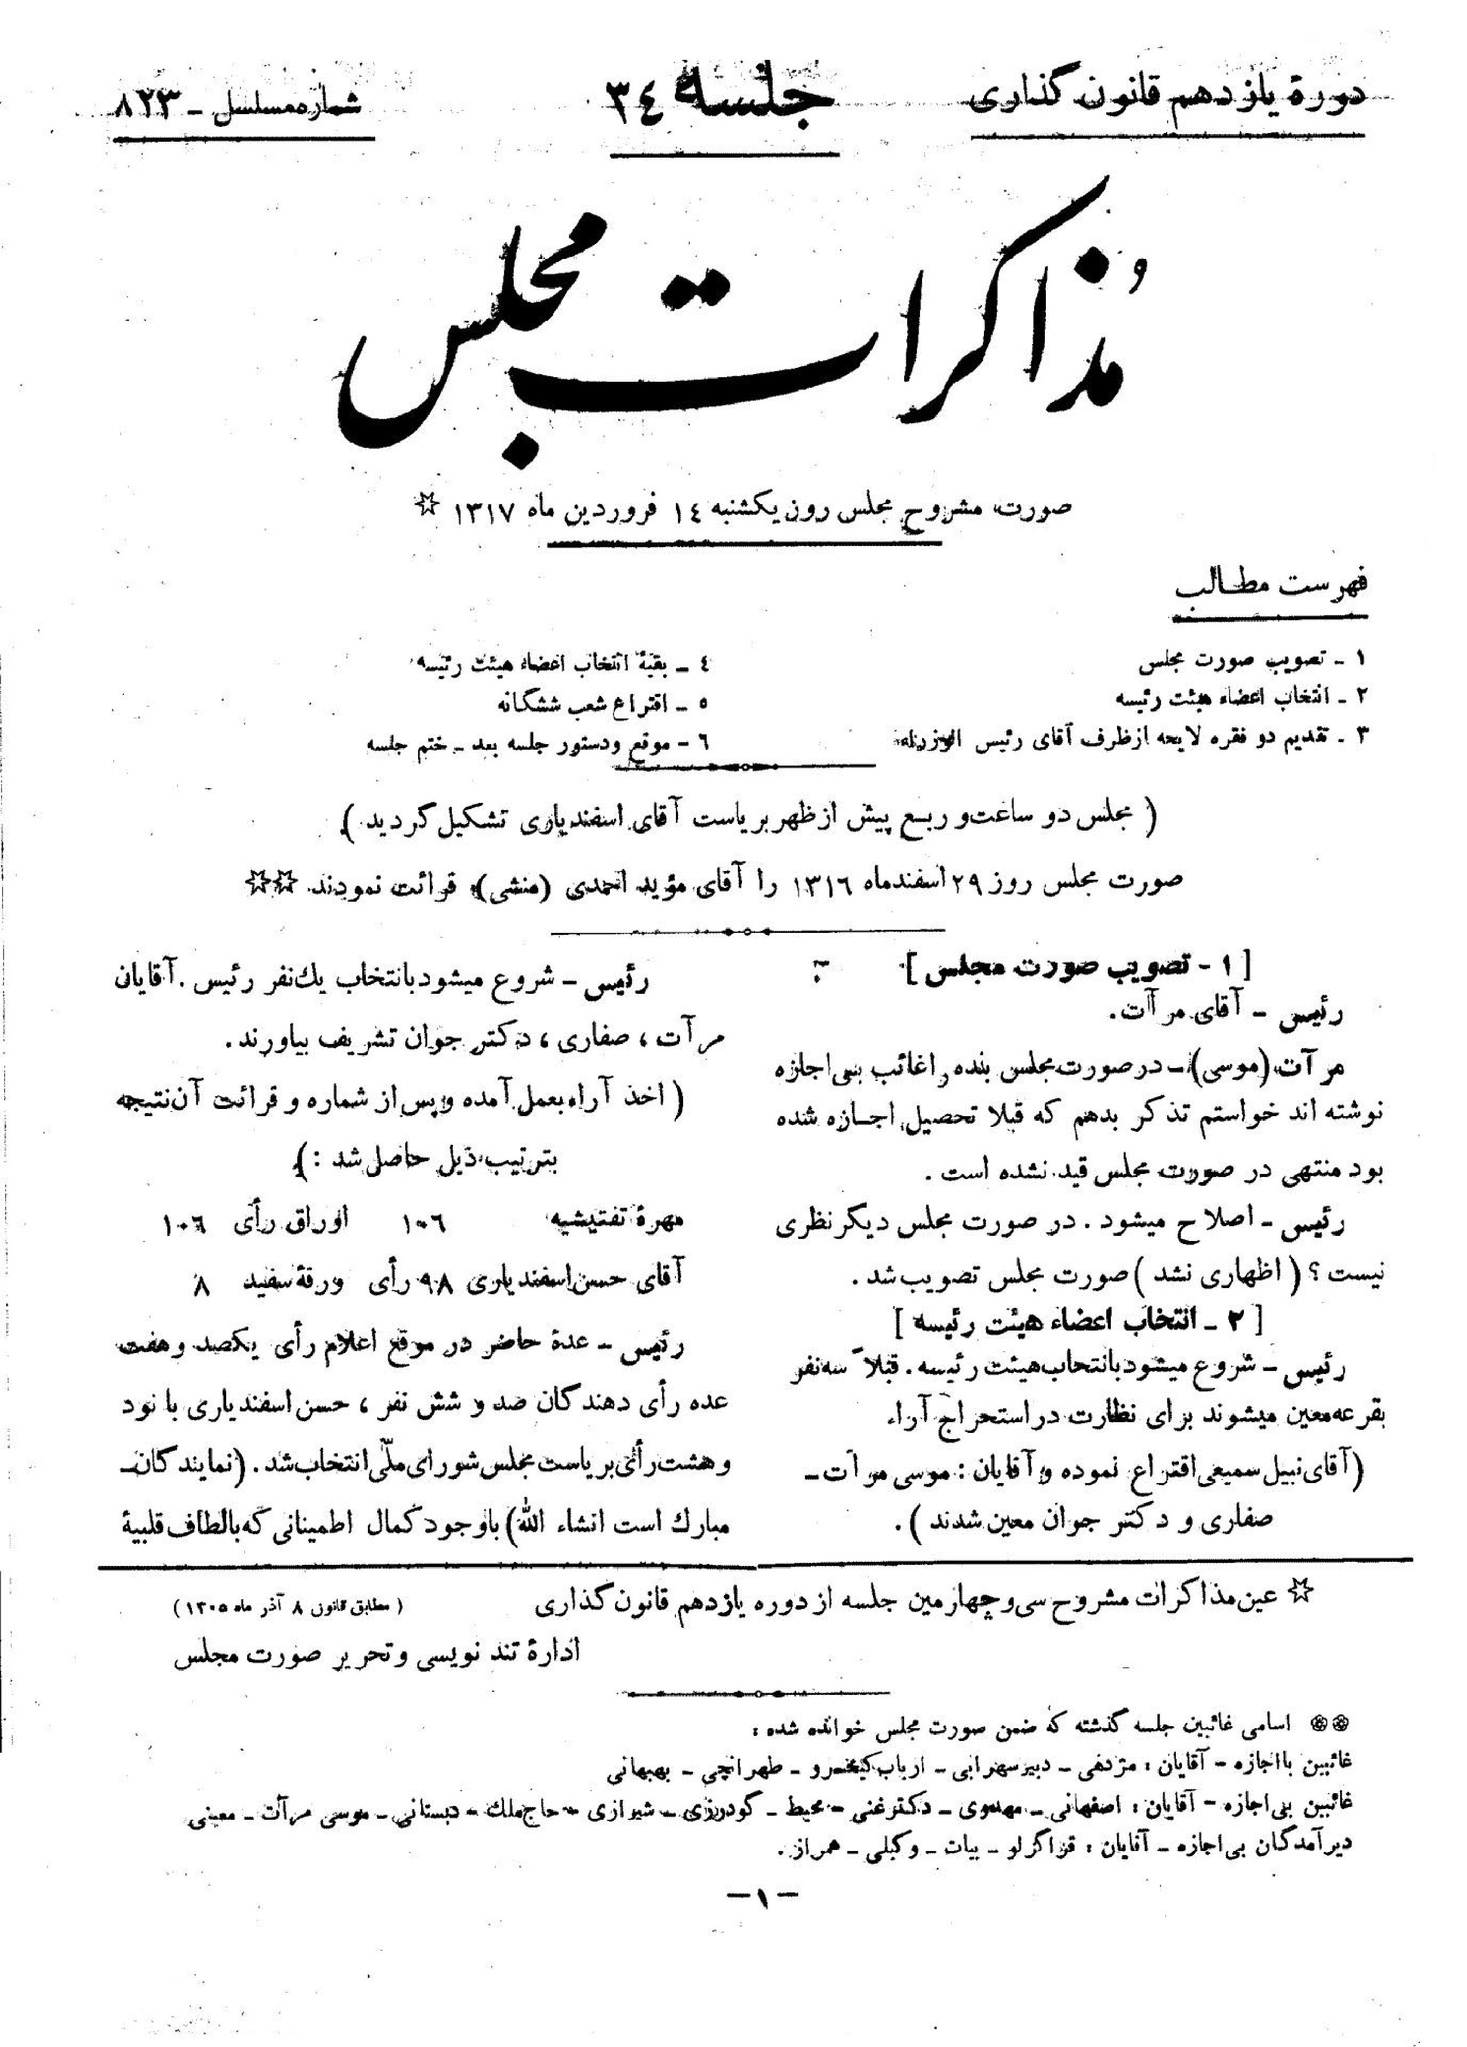 دورهٔ یازدهم قانون گذاری
جلسه ٣٤
شماره مسلسل ـ ٨٢٣
مذاکرات مجلس
صورت مشروح مجلس روز یکشنبه ١٤ فروردین ماه ١٣١٧ ☆
فهرست مطـالب
١ ـ تصویب صورت مجلس
٢ ـ انتخاب اعضاء هیئت رئیسه
٣ ـ تقدیم دو فقره لایحه از طرف آقای رئیس الوزراء
٤ ـ بقیهٔ انتخاب اعضاء هیئت رئیسه
٥ ـ اقتراع شعب ششگانه
٦ ـ موقع و دستور جلسه بعد ـ ختم جلسه
( مجلس دو ساعت و ربـع پیش از ظهر بریاست آقای اسفندیاری تشکیل گردید )
صورت مجلس روز ٢٩ اسفندماه ١٣١٦ را آقای مؤید احمدی (منشی) قرائت نمودند ☆☆
[ ١ - تصویب صورت مجلس ]
رئیس ـ آقای مرآت.
مرآت (موسی) ـ در صورت مجلس بنده را غائب بی اجازه
نوشته اند خواستم تذکر بدهم که قبلا تحصیل اجـازه شده
بود منتهی در صورت مجلس قید نشده است .
رئیس ـ اصلاح میشود . در صورت مجلس دیگر نظری
نیست ؟ ( اظهاری نشد ) صورت مجلس تصویب شد .
[ ٢ ـ انتخاب اعضاء هیئت رئیسه ]
رئیس ـ شروع میشود بانتخاب هیئت رئیسه . قبلاً سه نفر
بقرعه معین میشوند برای نظارت در استخراج آراء
( آقای نبیل سمیعی اقتراع نموده و آقایان : موسی مرآت ـ
صفاری و دکتر جوان معین شدند ) .
رئیس ـ شروع میشود بانتخاب یك نفر رئیس . آقایان
مرآت ، صفاری ، دکتر جوان تشریف بیاورند .
( اخذ آراء بعمل آمده و پس از شماره و قرائت آن نتیجه
بترتیب ذیل حاصل شد : )
مهرهٔ تفتیشیه ١٠٦ اوراق رأی ١٠٦
آقای حسن اسفندیاری ٩٨ رأی ورقهٔ سفید ٨
رئیس ـ عدهٔ حاضر در موقع اعلام رأی یکصد و هفت
عده رأی دهندگان صد و شش نفر ، حسن اسفندیاری با نود
و هشت رأی بریاست مجلس شورای ملّی انتخاب شد . (نمایندگان ـ
مبارك است انشاء الله) با وجود کمال اطمینانی که بالطاف قلبیهٔ
☆ عین مذاکرات مشروح سی و چهارمین جلسه از دوره یازدهم قانون گذاری ( مطابق قانون ٨ آذر ماه ١٣٠٥ )
ادارهٔ تند نویسی و تحریر صورت مجلس
❀❀ اسامی غائبین جلسه گذشته که ضمن صورت مجلس خوانده شده :
غائبین با اجازه ـ آقایان : مژدهی ـ دبیر سهرابی ـ ارباب کیخسرو ـ طهرانچی ـ بهبهانی
غائبین بی اجازه ـ آقایان : اصفهانی ـ مهدوی ـ دکتر غنی ـ محیط ـ گودرزی ـ شیرازی ـ حاج ملك ـ دبستانی ـ موسی مرآت ـ معینی
دیر آمدگان بی اجازه ـ آقایان : قراگزلو ـ بیات ـ وکیلی ـ همراز .
ـ ١ ـ